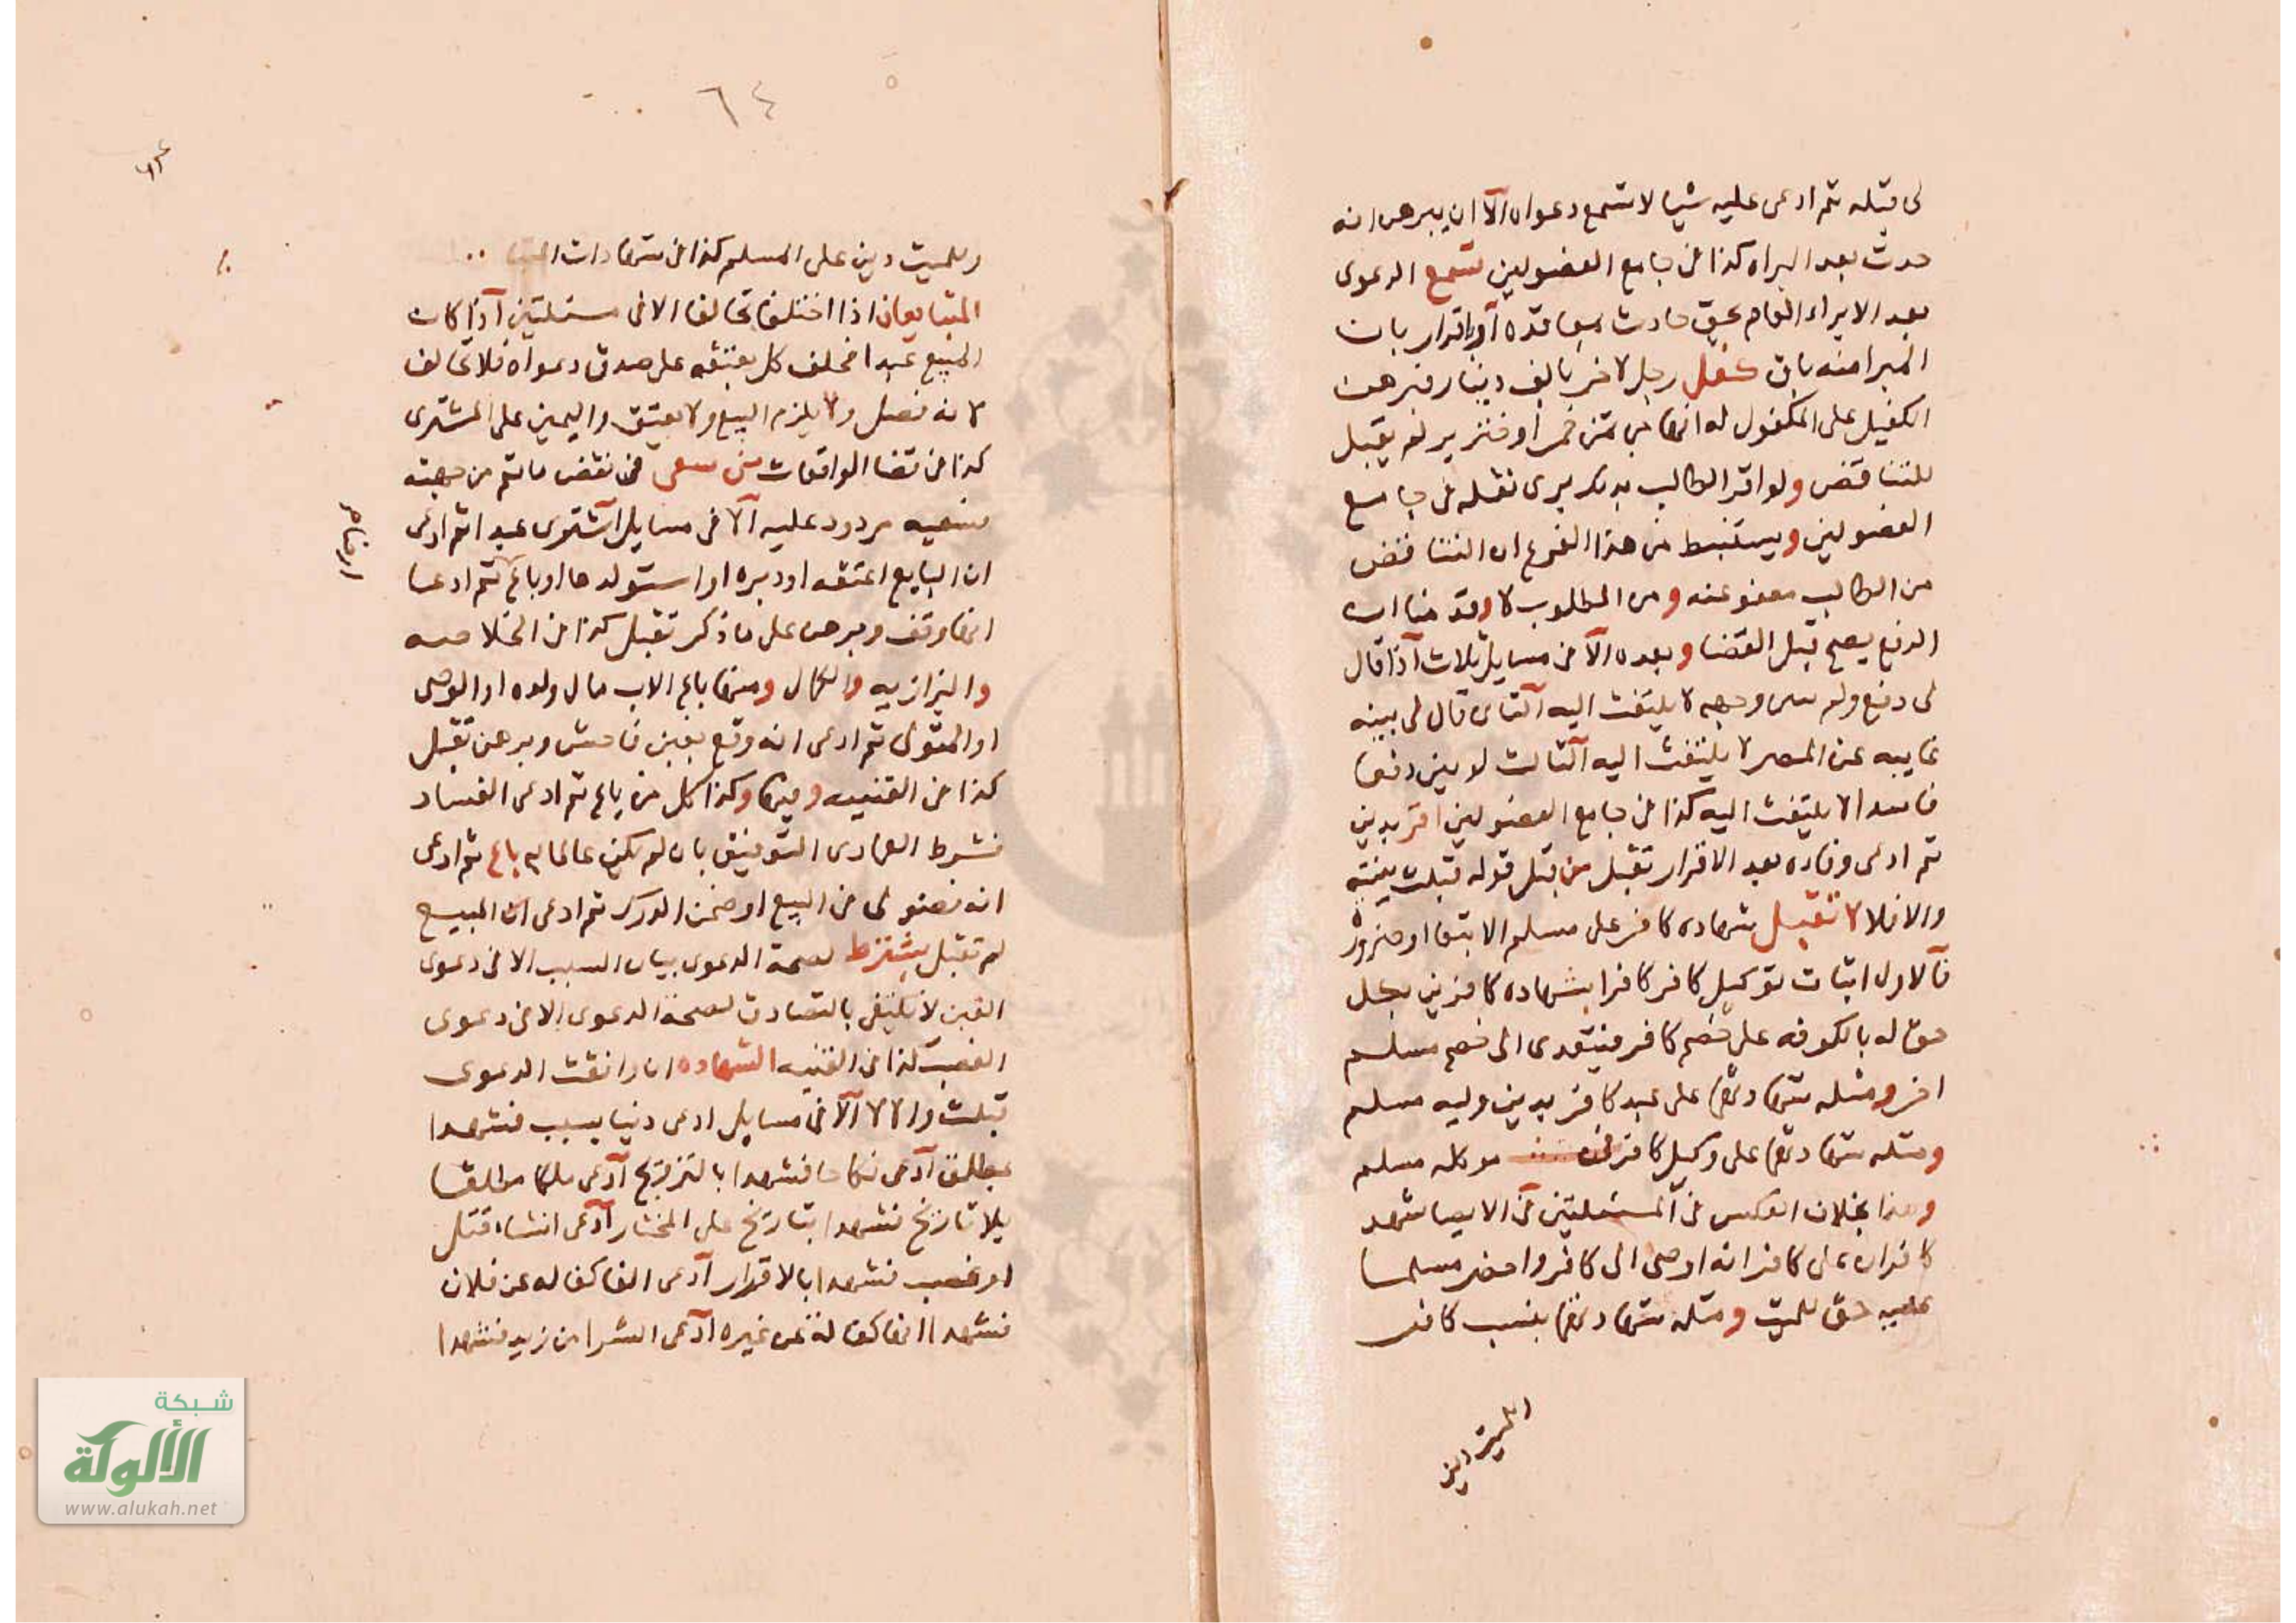 لى قبله ثم ادعى عليه شيا لا تسمع دعواه الا ان يبرهن انه
حدث بعد البراه كذا فى جامع الفصولين تسمع الدعوى
بعد الابراء العام بحق حادث اوباقرار بان
المبرا منه بان كفل رجل لاخر بالف دينار فبرهن
الكفيل على المكفول له انها من ثمن خمر او خنزير لم يقبل
للتناقض ولو اقر الطالب بذلك برى نقله فى جامع
الفصولين ويستنبط من هذا الفرع ان التناقض
من الطالب معفو عنه ومن المطلوب لا وقدمنا ان
الدفع يصح قبل القضا وبعده الا فى مسايل ثلاث اذا قال
لى دفع ولم وجهه لا يلتفت اليه الثانى قال لى بينه
غايبه عن المصر لا يلتفت اليه الثالث لو بين دفعا
فاسدا لا يلتفت اليه كذا فى جامع الفصولين اقر بدين
ثم ادعى وفاه بعد الاقرار تقبل من قبل قوله قبلت بينته
والا فلا لا تقبل شهاده كافر على مسلم الا تبعا او ضروره
فالاول اثبات توكيل كافر كافرا بشهاده كافرين بكل
حق له بالكوفه على خصم كافر فيتعدى الى خصم مسلم
اخر ومثله شهادتهما على عبد كافر بدين وليه مسلم
ومثله شهادتهما على وكيل كافر موكله مسلم
وهذا بخلاف العكس فى المسئلتين فى الايصا شهد
كافران على كافر انه اوصى الى كافر واحضر مسلما
عليه حق للميت ومثله شهادتهما بنسب كافر
الميت دين
٦٤
وللميت دين على المسلم كذا فى شهادات
المتبايعان اذا اختلفا تحالفا الا فى مسئلتين اذا كان
المبيع عبدا فحلف كل بعتقه على صدق دعواه فلا تحالف
لانه فصل ولا يلزم البيع ولا يعتق واليمين على المشترى
كذا فى قضا الواقعات من سعى فى نقض ما تم من جهته
فسعيه مردود عليه الا فى مسايل اشترى عبدا ثم ادعى
ان البايع اعتقه او دبره او استولدها او باع ثم ادعا
انها وقف وبرهن على ما ذكر تقبل كذا فى الخلاصه
والبزازيه والكمال ومنها باع الاب مال ولده او الوصى
او المتولى ثم ادعى انه وقع بغبن فاحش وبرهن تقبل
كذا فى القنيه ومنها وكذا كل من باع ثم ادعى الفساد
فشرط العمادى التوفيق بان لم يكن عالما به باع ثم ادعى
انه فضولى فى البيع او ضمن الدرك ثم ادعى ان المبيع
لم تقبل يشترط لصحة الدعوى بيان السبب الا فى دعوى
العين لا يكتفى بالتصادق لصحة الدعوى الا فى دعوى
الغصب كذا فى القنيه الشهاده ان وافقت الدعوى
قبلت والا لا الا فى مسايل ادعى دينا بسبب فشهدا
بمطلق ادعى نكاحا فشهدا بالتزويج ادعى ملكا مطلقا
بلا تاريخ فشهدا بتاريخ على المختار ادعى انشاء قتل
او غصب فشهدا بالاقرار ادعى الفا كفاله عن فلان
فشهدا انها كفالة عن غيره ادعى الشرا من زيد فشهدا
شبكة
الألوكة
www.alukah.net